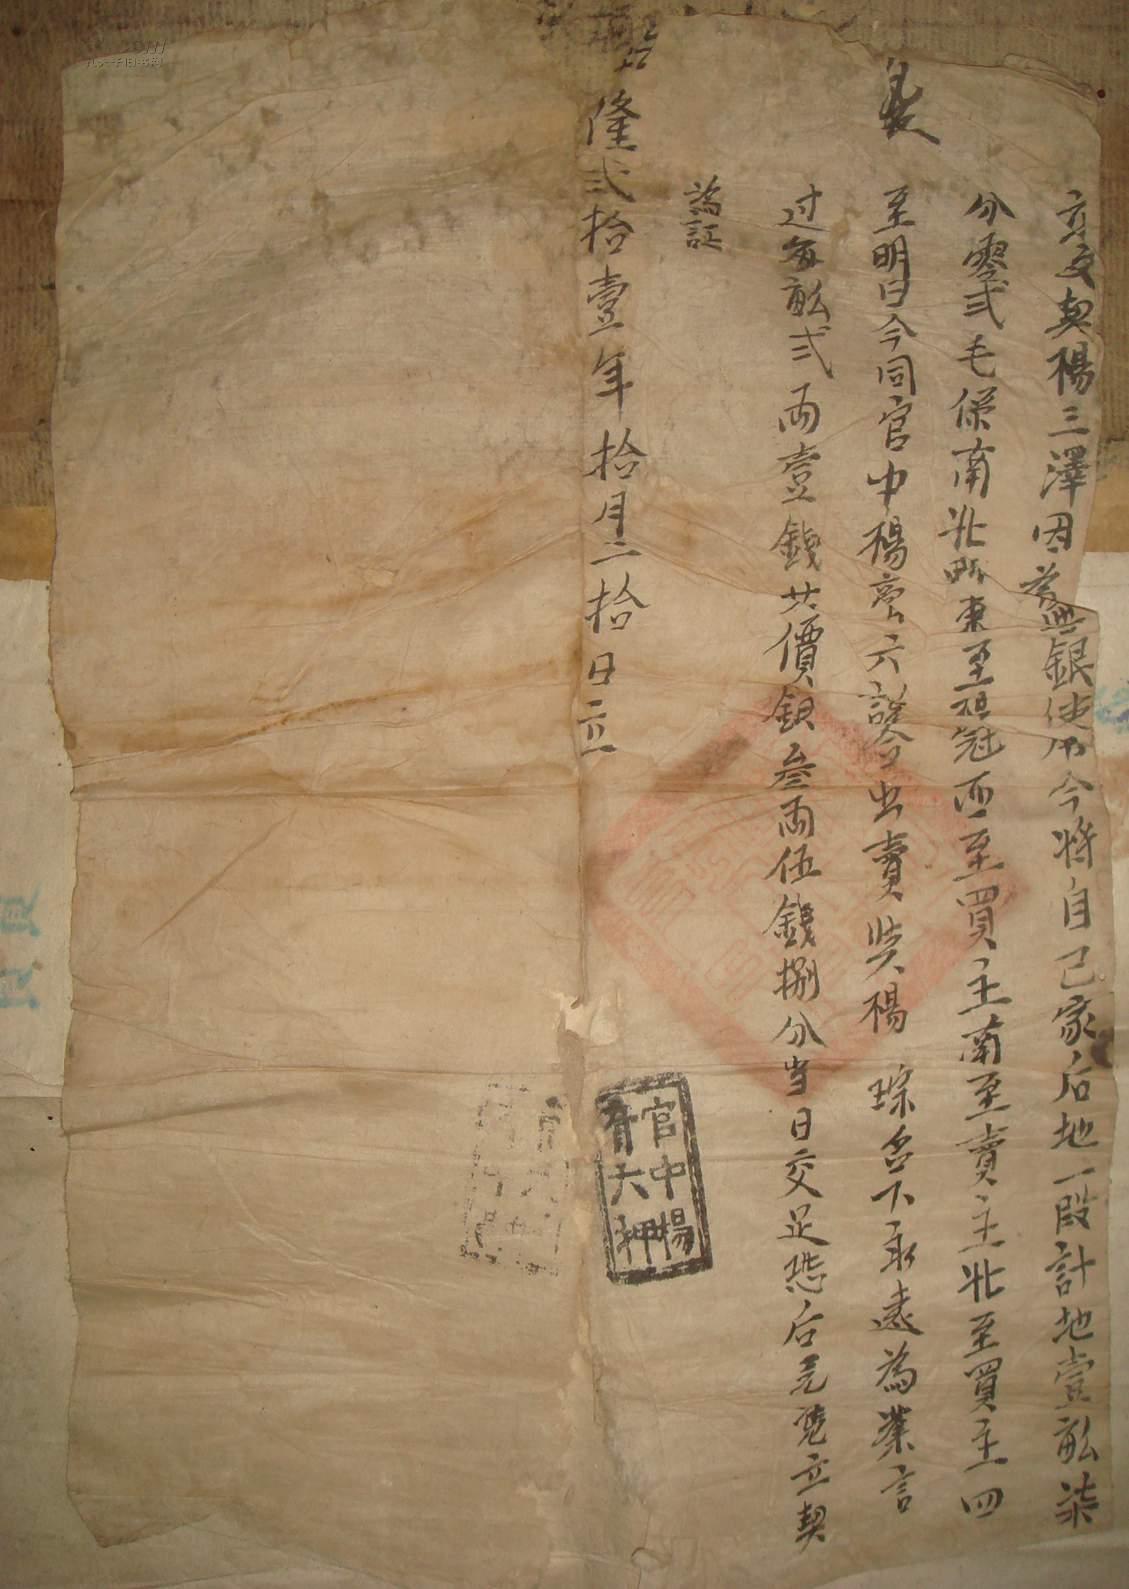 立文契楊三澤因為無銀使用今將自己家后地一段計地壹畝柒
分零弍毛係南北畛東至冠西至買主南至賣主北至買主四
至明白今同官中楊言六説合出賣與楊琮名下永遠為業言
过每畝弍両壹錢共價銀叁両伍錢捌分当日交足恐后无凭立契
為証
隆弍拾壹年拾月二拾日立
官中楊
育大押